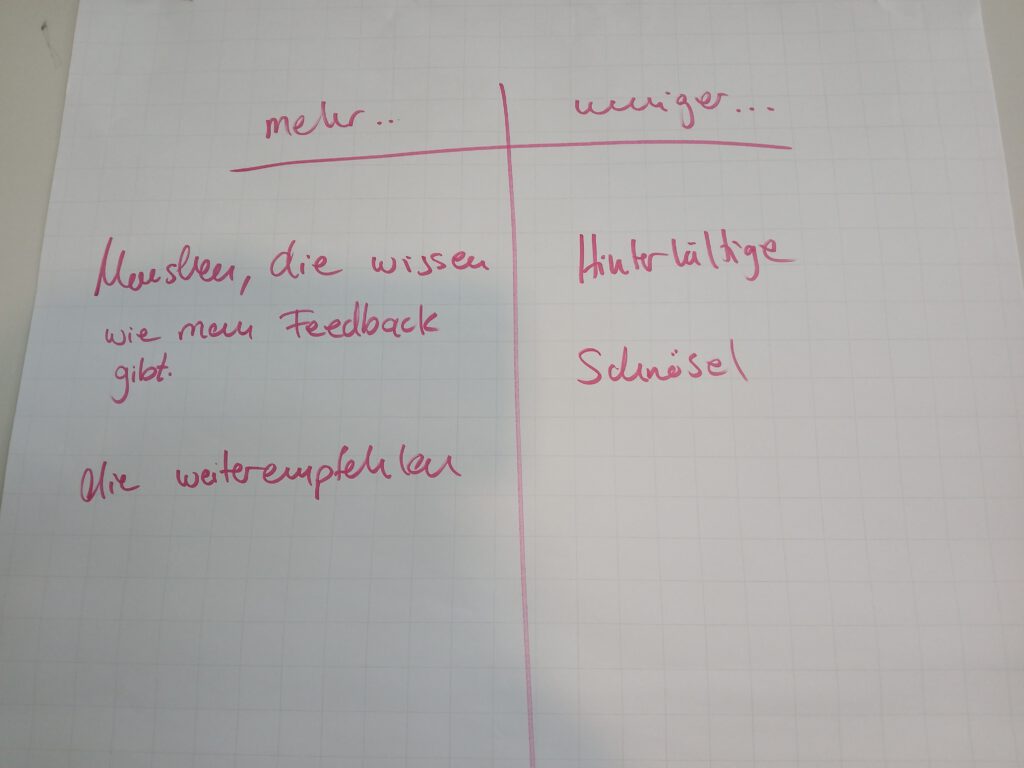 mehr..
weniger...
Menschen, die wissen
wie man Feedback
gibt.
die weiterempfehlen
Hinterhältige
Schnösel